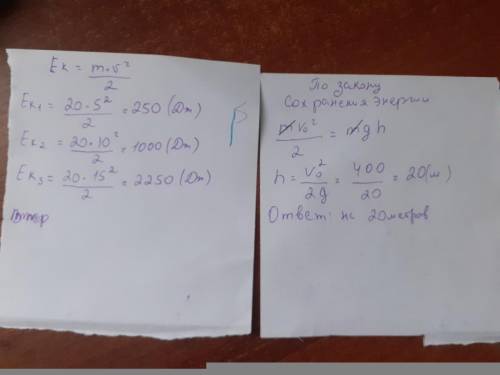 Eк = m·v²/2
Eк₁ = 20·5²/2 = 250 (Дж)
Eк₂ = 20·10²/2 = 1000 (Дж)
Eк₃ = 20·15²/2 = 2250 (Дж)
По закону
Сохранения энергии
mv₀²/2 = mgh
h = v₀²/2g = 400/20 = 20(м)
Ответ: на 20метров